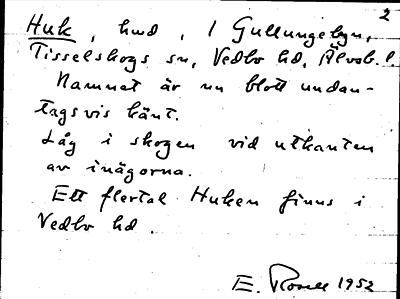 2
Huk, hwd, 1 Gullungebyn,
Tisselskogs sn, Vedbo hd, Älvsb. l.
Namnet är nu blott undan-
tagsvis känt.
Låg i skogen vid utkanten
av inägorna.
Ett flertal Huken finns i
Vedbo hd.
E. Rosell 1952